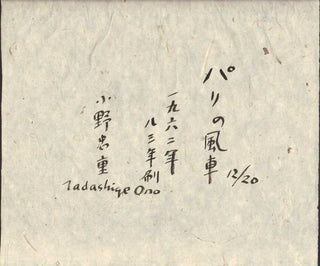 パリの風車
12/20
一九六二年
八三年刷
小野忠重
Tadashige Ono